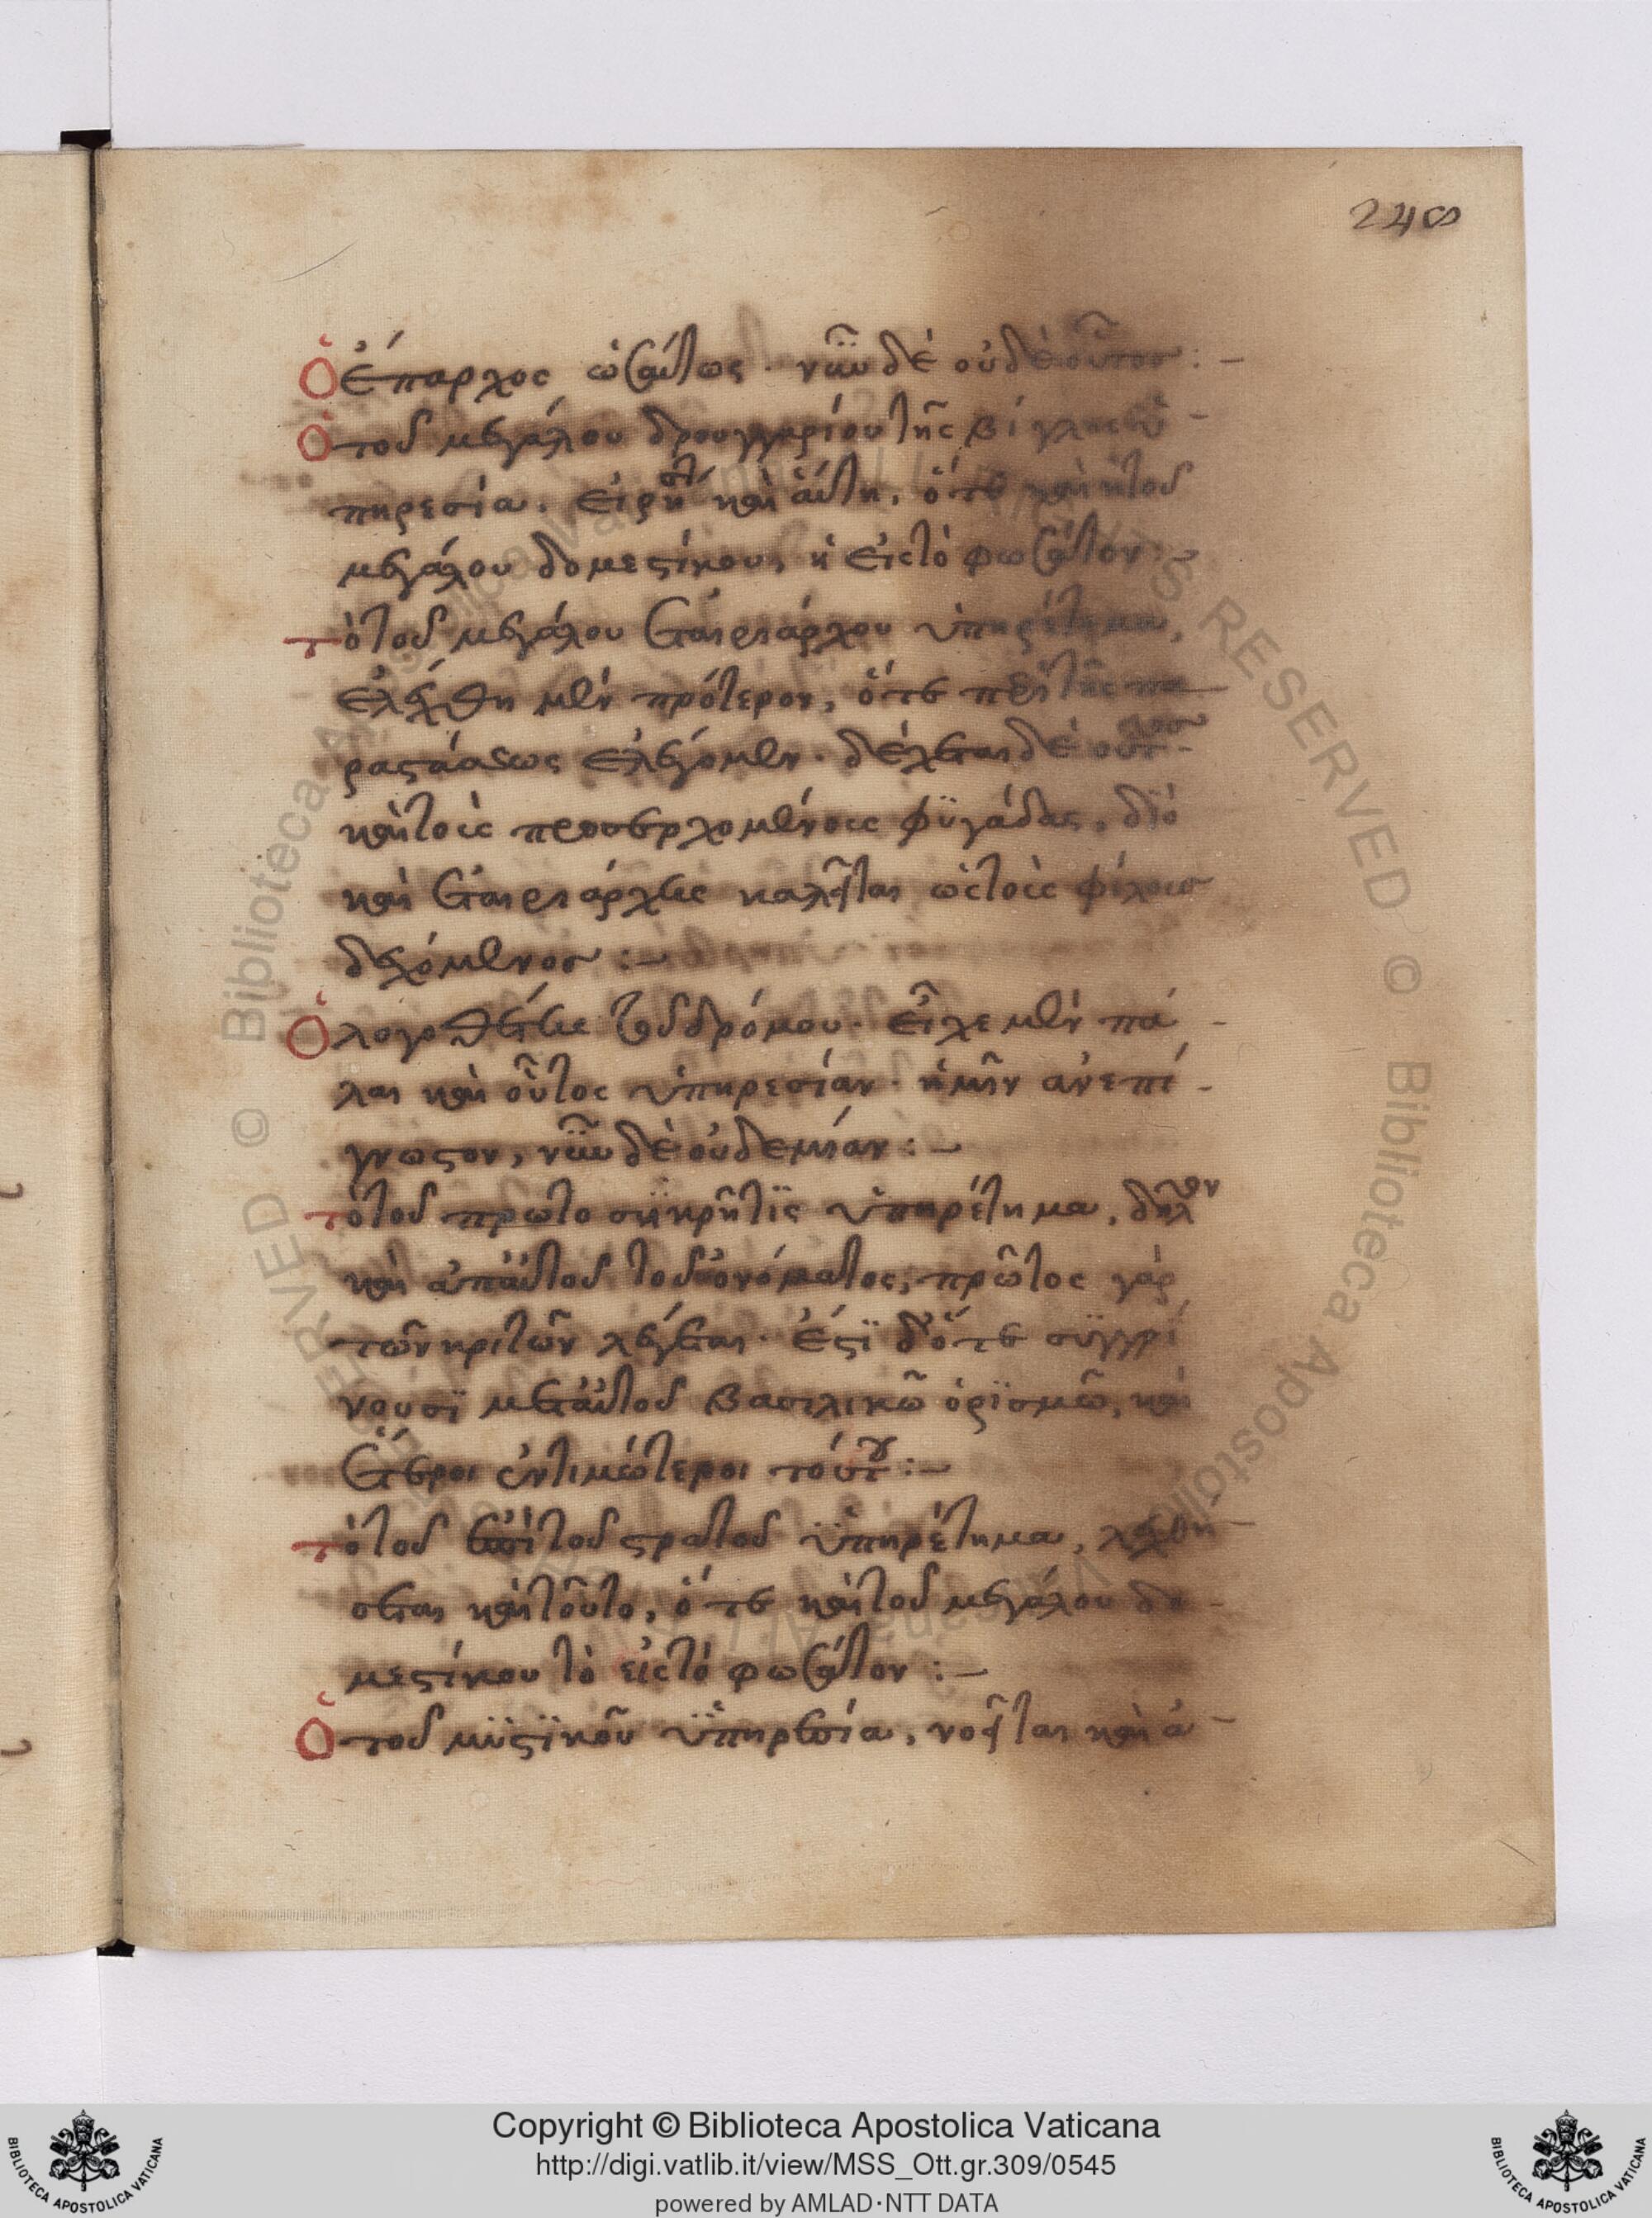 248
Ὁ ἔπαρχος ὡσαύτως· νῦν δὲ οὐδὲ οὗτος:–
Ὁ τοῦ μεγάλου δρουγγαρίου τῆς βίγλης ὑ–
πηρεσία, εἰρη^ται καὶ αὕτη, ὅτε καὶ ἡ τοῦ
μεγάλου δομεστίκου, ἡ εἰς τὸ φωσάτον:–
τὸ τοῦ μεγάλου ἑταιριάρχου ὑπηρέτημα,
ἐλέχθη μὲν πρότερον, ὅτε περὶ τῆς πα–
ραστάσεως ἐλέγομεν· δέχεται δὲ οὗτος
καὶ τοὺς προσερχομένους φϋγάδας, διὸ
καὶ ἑταιριάρχης καλεῖται ὡς τοὺς φίλους
δεχόμενος:–
Ὁ λογοθέτης τοῦ δρόμου· εἶχε μὲν πά–
λαι καὶ οὗτος ὑπηρεσίαν· ἡμῖν ἀνεπί–
γνωστον, νῦν δὲ οὐδεμίαν:–
τὸ τοῦ πρωτοασηκρῆτις ὑπηρέτημα, δῆλον
καὶ ἀπ' αὐτοῦ τοῦ ὀνόματος, πρῶτος γὰρ
τῶν κριτῶν λέγεται· ἔστι δ' ὅτε συγκρί
νουσϊ μετ' αὐτοῦ βασιλικῶ ὁρϊσμῶ, καὶ
ἕτεροι ἐντιμότεροι τούτου:–
τὸ τοῦ ἐπὶ τοῦ στρατοῦ ὑπηρέτημα, λεχθή–
σεται καὶ τοῦτο, ὅτε καὶ τοῦ μεγάλου δο–
μεστίκου τὸ εἰς τὸ φωσάτον:–
Ὁ τοῦ μϋστϊκοῦ ὑπηρεσία, νοεῖται καὶ ἀ–
Copyright © Biblioteca Apostolica Vaticana
http://digi.vatlib.it/view/MSS_Ott.gr.309/0545
powered by AMLAD·NTT DATA